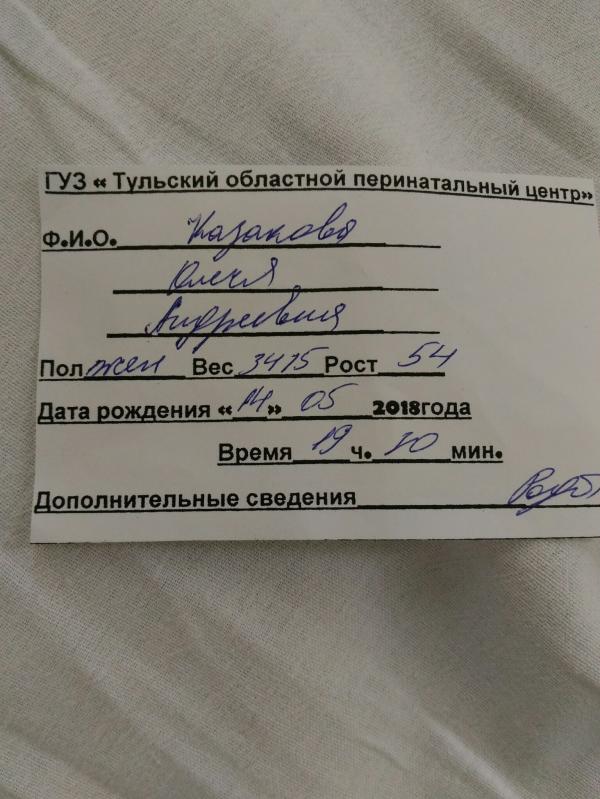 ГУЗ « Тульский областной перинатальный центр»
Ф.И.О. Казакова
Юлия
Андреевна
Пол жен Вес 3415 Рост 54
Дата рождения «14» 05 2018года
Время 19 ч. мин.
Дополнительные сведения